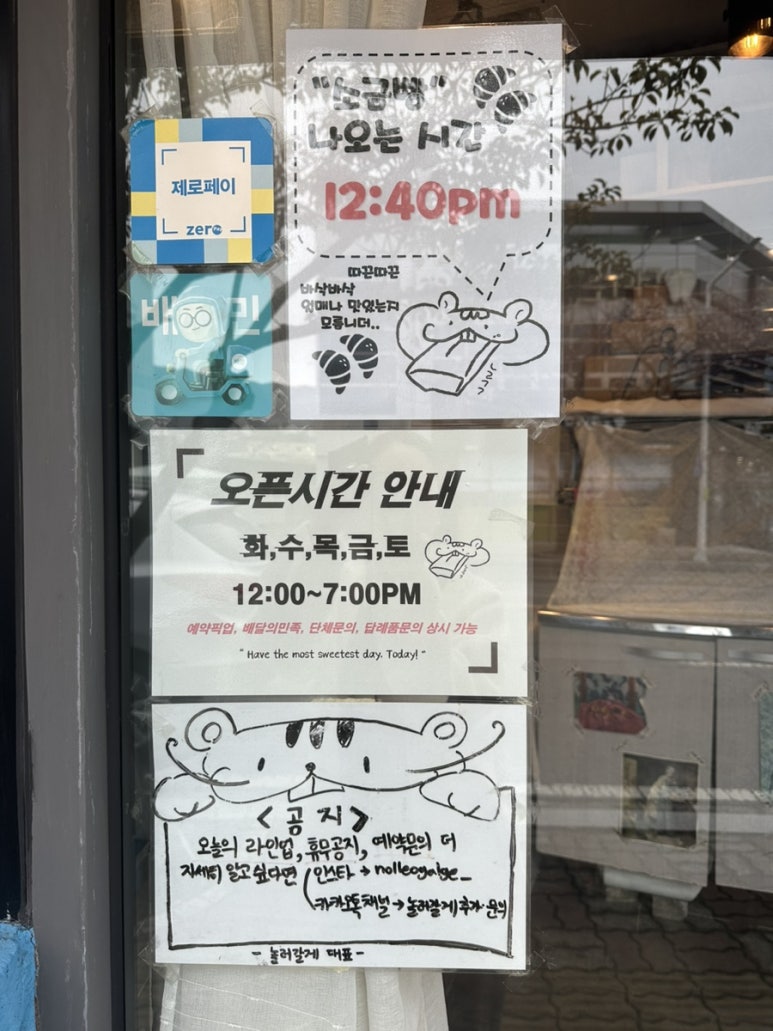 "소금빵"
나오는 시간
12:40pm
따끈따끈
바삭바삭
얼매나 맛있는지
모릅니더..
제로페이
zero
배민
오픈시간 안내
화,수,목,금,토
12:00~7:00PM
예약픽업, 배달의민족, 단체문의, 답례품문의 상시 가능
" Have the most sweetest day. Today! "
<공지>
오늘의 라인업, 휴무공지, 예약문의 더
자세히 알고싶다면 인스타 → nolleogalge_
카카오톡채널 → 놀러갈게 추가·문의
- 놀러갈게 대표 -